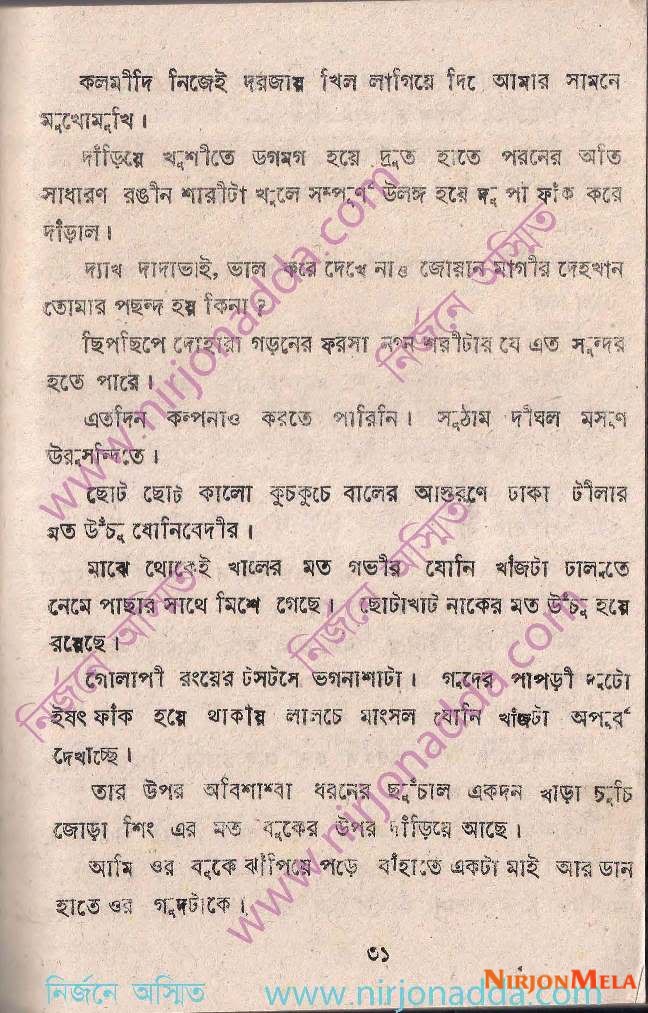 কলমীদি নিজেই দরজায় খিল লাগিয়ে দিে আমার সামনে
মুখোমুখি।
দাঁড়িয়ে খুশীতে ডগমগ হয়ে দ্রুত হাতে পরনের অতি
সাধারণ রঙীন শারীটা খুলে সম্পূর্ণ উলঙ্গ হয়ে দু পা ফাঁক করে
দাঁড়াল।
দ্যাখ দাদাভাই, ভাল করে দেখে নাও জোয়ান মাগীর দেহখান
তোমার পছন্দ হয় কিনা?
ছিপছিপে দোহারা গড়নের ফরসা নগ্ন শরীটার যে এত সুন্দর
হতে পারে।
এতদিন কল্পনাও করতে পারিনি। সুঠাম দীঘল মসৃণ
উরুসন্দিতে।
ছোট ছোট কালো কুচকুচে বালের আস্তরণে ঢাকা টীলার
মত উঁচু যোনিবেদীর।
মাঝে থোকেই খালের মত গভীর যোনি খাঁজটা ঢালুতে
নেমে পাছার সাথে মিশে গেছে। ছোটাখাট নাকের মত উঁচু হয়ে
রয়েছে।
গোলাপী রংয়ের টসটসে ভগনাশাটা। গুদের পাপড়ী দুটো
ইষৎ ফাঁক হয়ে থাকায় লালচে মাংসল যোনি খাঁজটা অপূর্ব
দেখাচ্ছে।
তার উপর অবিশাশ্বা ধরনের ছুঁচাল একদন খাড়া চুচি
জোড়া শিং এর মত বুকের উপর দাঁড়িয়ে আছে।
আমি ওর বুকে ঝাঁপিয়ে পড়ে বাঁহাতে একটা মাই আর ডান
হাতে ওর গুদটাকে।
৩১
www.nirjonadda.com
নির্জনে অস্মিত
নির্জনে অস্মিত
নির্জনে অস্মিত
www.nirjonadda.com
নির্জনে অস্মিত www.nirjonadda.com
NIRJONMELA